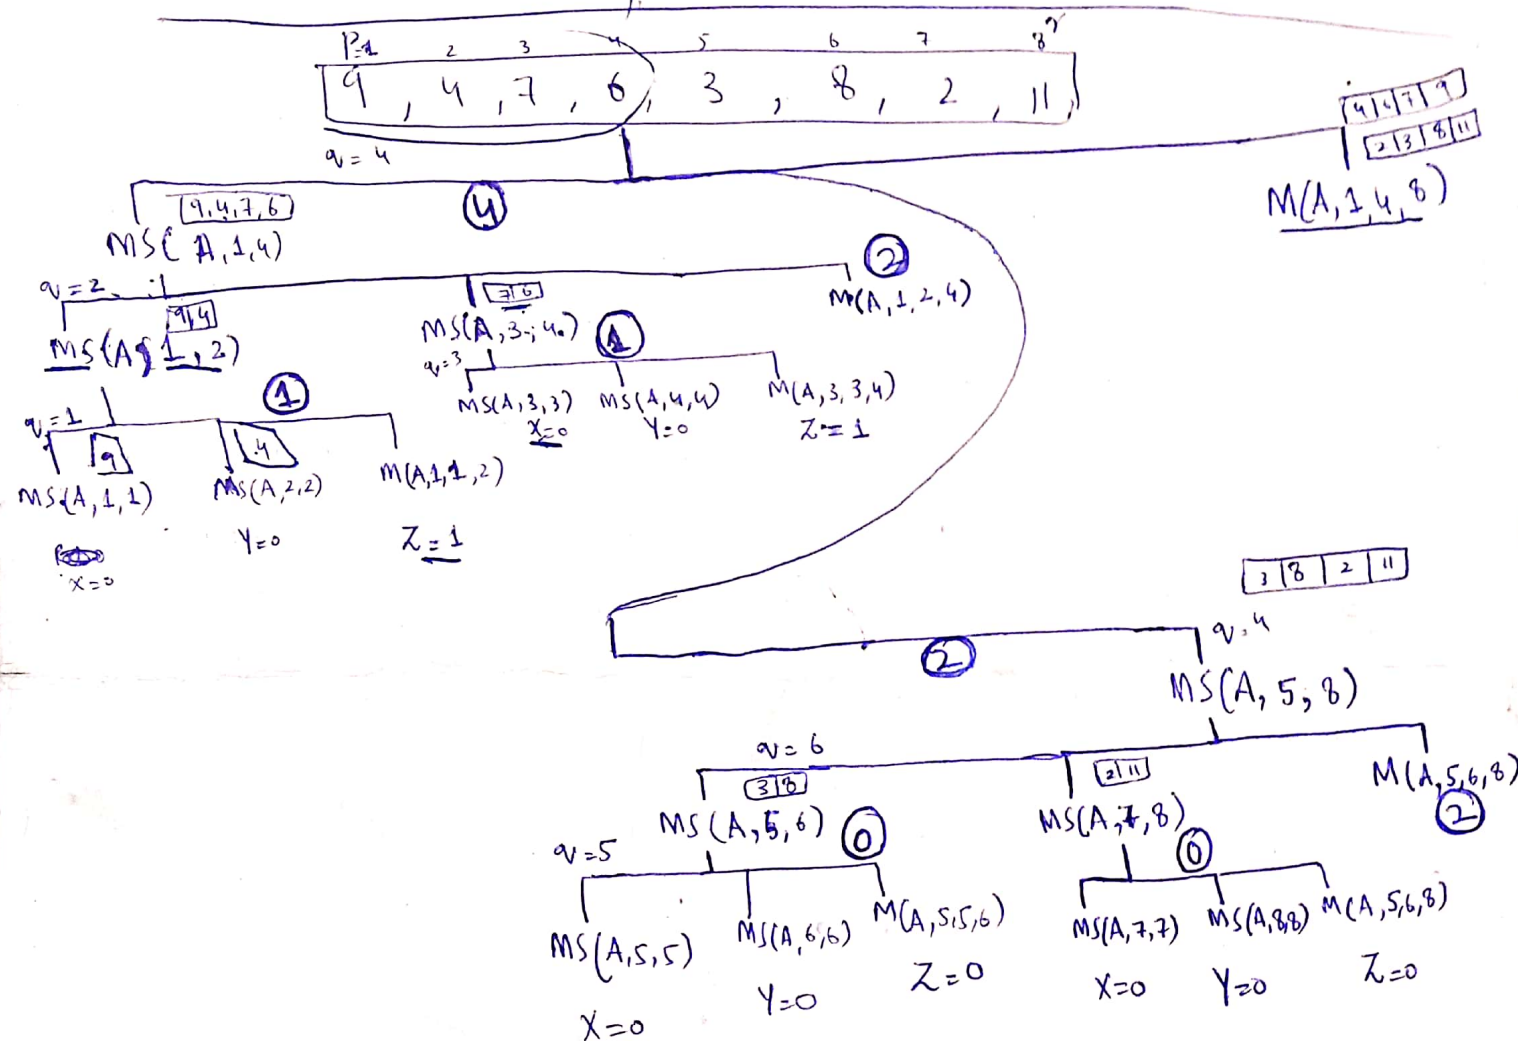 P=1 2 3 4 5 6 7 8 r
9 , 4 , 7 , 6 , 3 , 8 , 2 , 11
q = 4
4 6 7 9
2 3 8 11
M(A, 1, 4, 8)
9, 4, 7, 6
4
MS(A, 1, 4)
2
q = 2
9, 4
7 6
M(A, 1, 2, 4)
MS(A, 1, 2)
MS(A, 3, 4)
1
q = 3
MS(A, 3, 3) MS(A, 4, 4) M(A, 3, 3, 4)
X=0 Y=0 Z=1
1
q = 1
9
4
MS(A, 1, 1) MS(A, 2, 2) M(A, 1, 1, 2)
X=0 Y=0 Z=1
3 8 2 11
q = 4
2
MS(A, 5, 8)
q = 6
3 8
2 11
MS(A, 5, 6)
MS(A, 7, 8)
M(A, 5, 6, 8)
0
0
2
q = 5
MS(A, 5, 5) MS(A, 6, 6) M(A, 5, 5, 6)
X=0 Y=0 Z=0
MS(A, 7, 7) MS(A, 8, 8) M(A, 5, 6, 8)
X=0 Y=0 Z=0